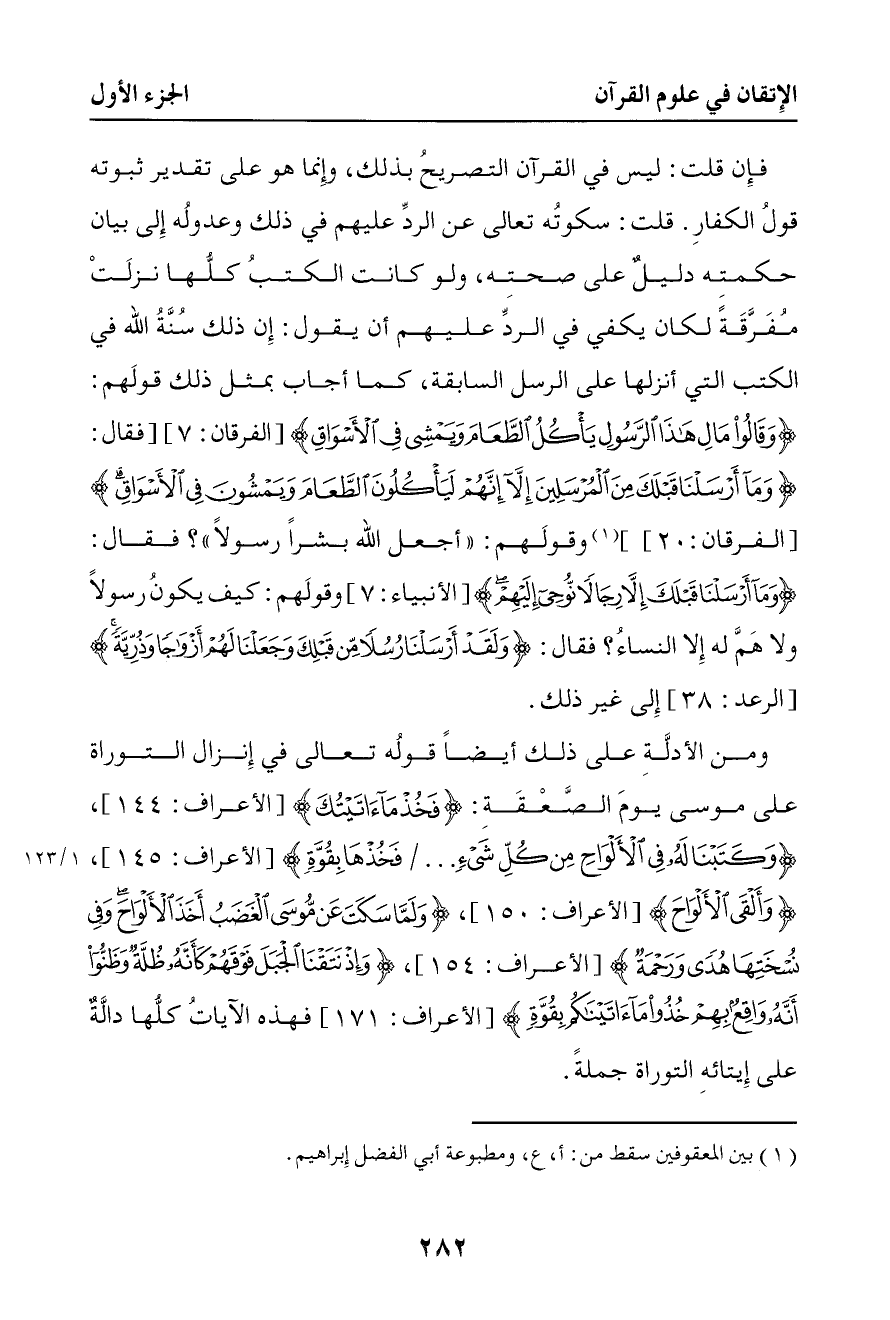 الإتقان في علوم القرآن الجزء الأول
فإن قلت: ليس في القرآن التصريحُ بذلك، وإنما هو على تقدير ثبوته
قولُ الكفارِ. قلت: سكوتُه تعالى عن الردِّ عليهم في ذلك وعدولُه إلى بيان
حكمتِه دليلٌ على صحتِه، ولو كانت الكتبُ كلُّها نزلَتْ
مُفَرَّقَةً لكان يكفي في الردِّ عليهم أن يقول: إن ذلك سُنَّةُ الله في
الكتب التي أنزلها على الرسل السابقة، كما أجاب بمثل ذلك قولَهم:
﴿وَقَالُواْ مَالِ هَٰذَا ٱلرَّسُولِ يَأْكُلُ ٱلطَّعَامَ وَيَمْشِى فِى ٱلْأَسْوَاقِ﴾ [الفرقان: ٧] [فقال:
﴿وَمَآ أَرْسَلْنَا قَبْلَكَ مِنَ ٱلْمُرْسَلِينَ إِلَّآ إِنَّهُمْ لَيَأْكُلُونَ ٱلطَّعَامَ وَيَمْشُونَ فِى ٱلْأَسْوَاقِۗ﴾
[الفرقان: ٢٠] ](١) وقولَهم: «أجعل الله بشراً رسولاً»؟ فقال:
﴿وَمَآ أَرْسَلْنَا قَبْلَكَ إِلَّا رِجَالًا نُّوحِىٓ إِلَيْهِمْۖ﴾ [الأنبياء: ٧] وقولَهم: كيف يكونُ رسولاً
ولا هَمَّ له إلا النساءُ؟ فقال: ﴿وَلَقَدْ أَرْسَلْنَا رُسُلًا مِّن قَبْلِكَ وَجَعَلْنَا لَهُمْ أَزْوَٰجًا وَذُرِّيَّةًۚ﴾
[الرعد: ٣٨] إلى غير ذلك.
ومن الأدلَّةِ على ذلك أيضاً قولُه تعالى في إنزال التوراة
على موسى يومَ الصَّعْقَةِ: ﴿فَخُذْ مَآ ءَاتَيْتُكَ﴾ [الأعراف: ١٤٤]،
﴿وَكَتَبْنَا لَهُۥ فِى ٱلْأَلْوَاحِ مِن كُلِّ شَىْءٍ... / فَخُذْهَا بِقُوَّةٍ﴾ [الأعراف: ١٤٥]، ١٢٣/١
﴿وَأَلْقَى ٱلْأَلْوَاحَ﴾ [الأعراف: ١٥٠]، ﴿وَلَمَّا سَكَتَ عَن مُّوسَى ٱلْغَضَبُ أَخَذَ ٱلْأَلْوَاحَۖ وَفِى
نُسْخَتِهَا هُدًى وَرَحْمَةٌ﴾ [الأعراف: ١٥٤]، ﴿وَإِذْ نَتَقْنَا ٱلْجَبَلَ فَوْقَهُمْ كَأَنَّهُۥ ظُلَّةٌ وَظَنُّوٓاْ
أَنَّهُۥ وَاقِعٌۢ بِهِمْ خُذُواْ مَآ ءَاتَيْنَٰكُم بِقُوَّةٍ﴾ [الأعراف: ١٧١] فهذه الآياتُ كلُّها دالَّةٌ
على إيتائِه التوراة جملةً.
(١) بين المعقوفين سقط من: أ، ع، ومطبوعة أبي الفضل إبراهيم.
٢٨٢